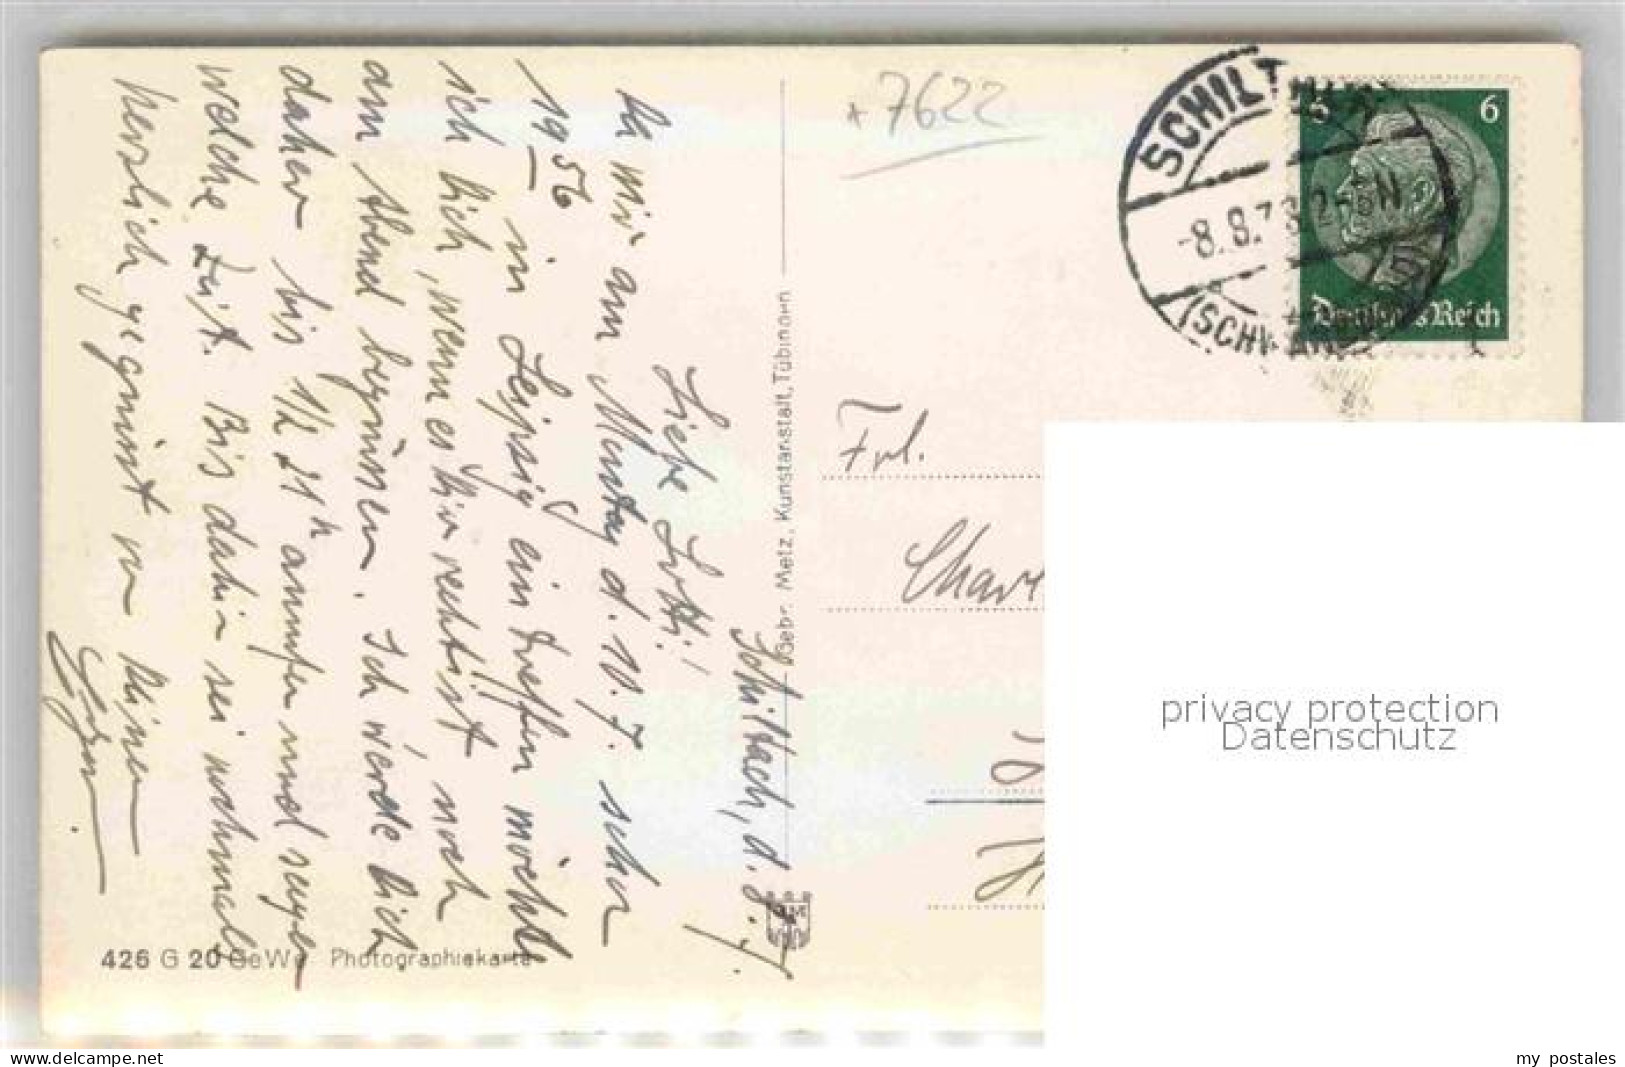 *7622
SCHILTACH
-8.8.
(SCHWARZW
6
6
Deutsches Reich
Frl.
Char
Gebr. Metz, Kunstanstalt, Tübingen
Schiltach, d. 8.
Liebe Lotti!
Da mir am Montag d. 10. 7. schon
19 56 in Leipzig ein treffen möchte
ich Dich, wenn es Dir recht ist, noch
am Abend begrüssen. Ich werde Dich
daher bis 1/2 21 h anrufen und sagen
welche Zeit. Bis dahin sei nochmals
herzlich gegrüsst von Deinem
426 G 20 GeWe Photographiekarte
privacy protection
Datenschutz
delcampe.net
my postales